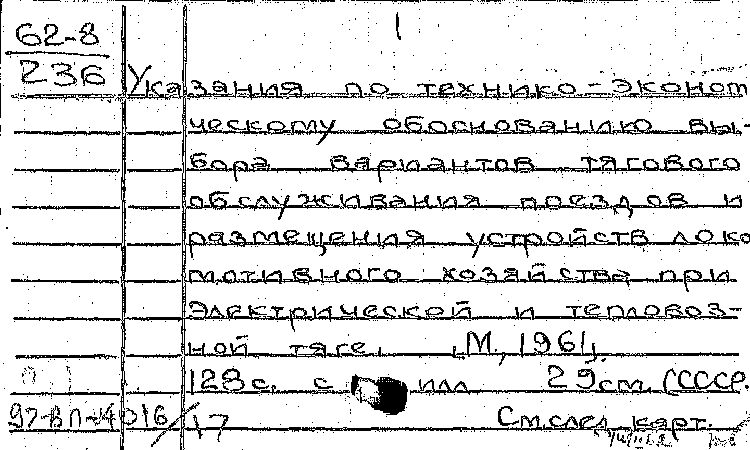 62-8
236
Указания по технико-эконом
ческому обоснованию вы-
бора вариантов тягового
обслуживания поездов и
размещения устройств локо
мотивного хозяйства при
электрической и тепловоз-
ной тяге. М., 1961.
128 с. с илл. 29 см. (СССР.
97-ВП-4016/17 См. след. карт.